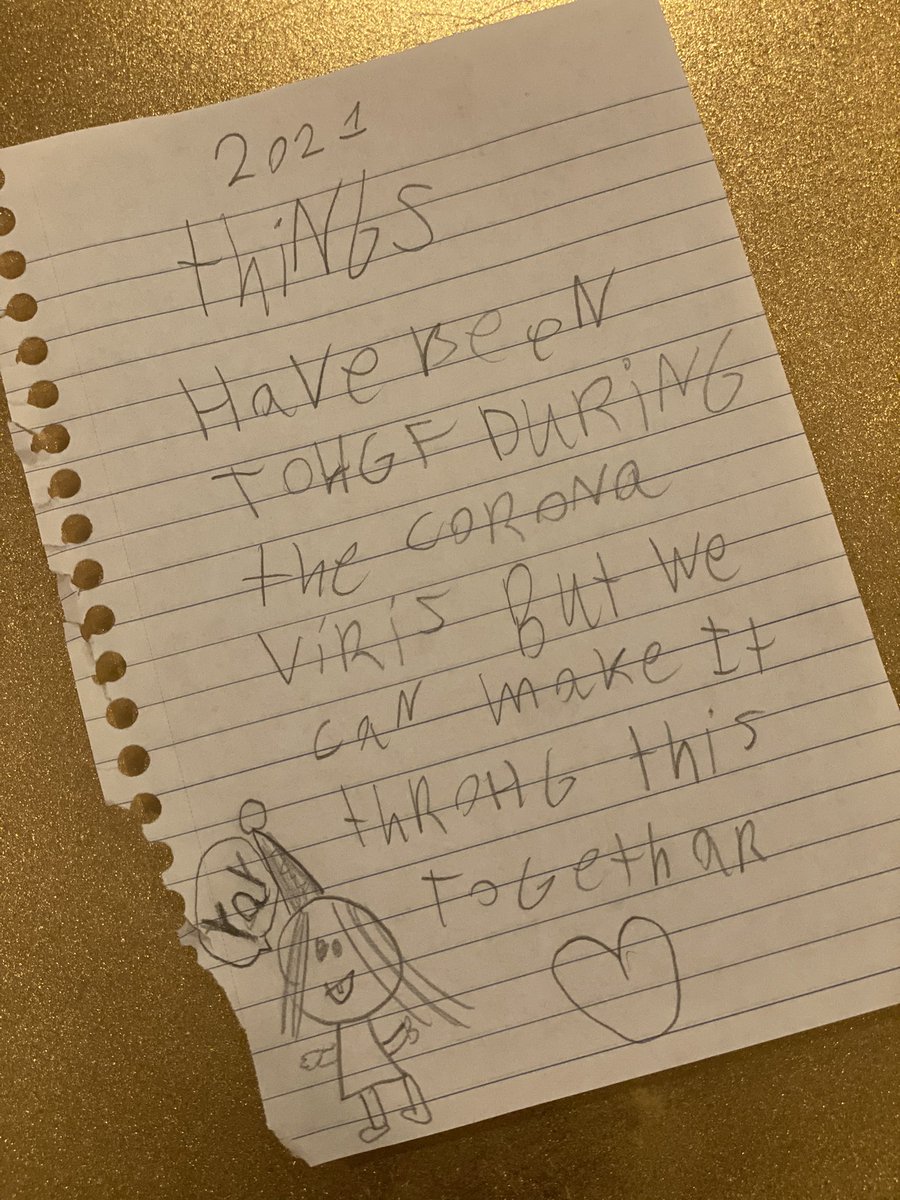 2021
thiNGS
HaVe BeeN
TOHGF DURiNG
the CORONa
ViRiS But We
CaN make It
thROHG this
TOGethaR
YaY